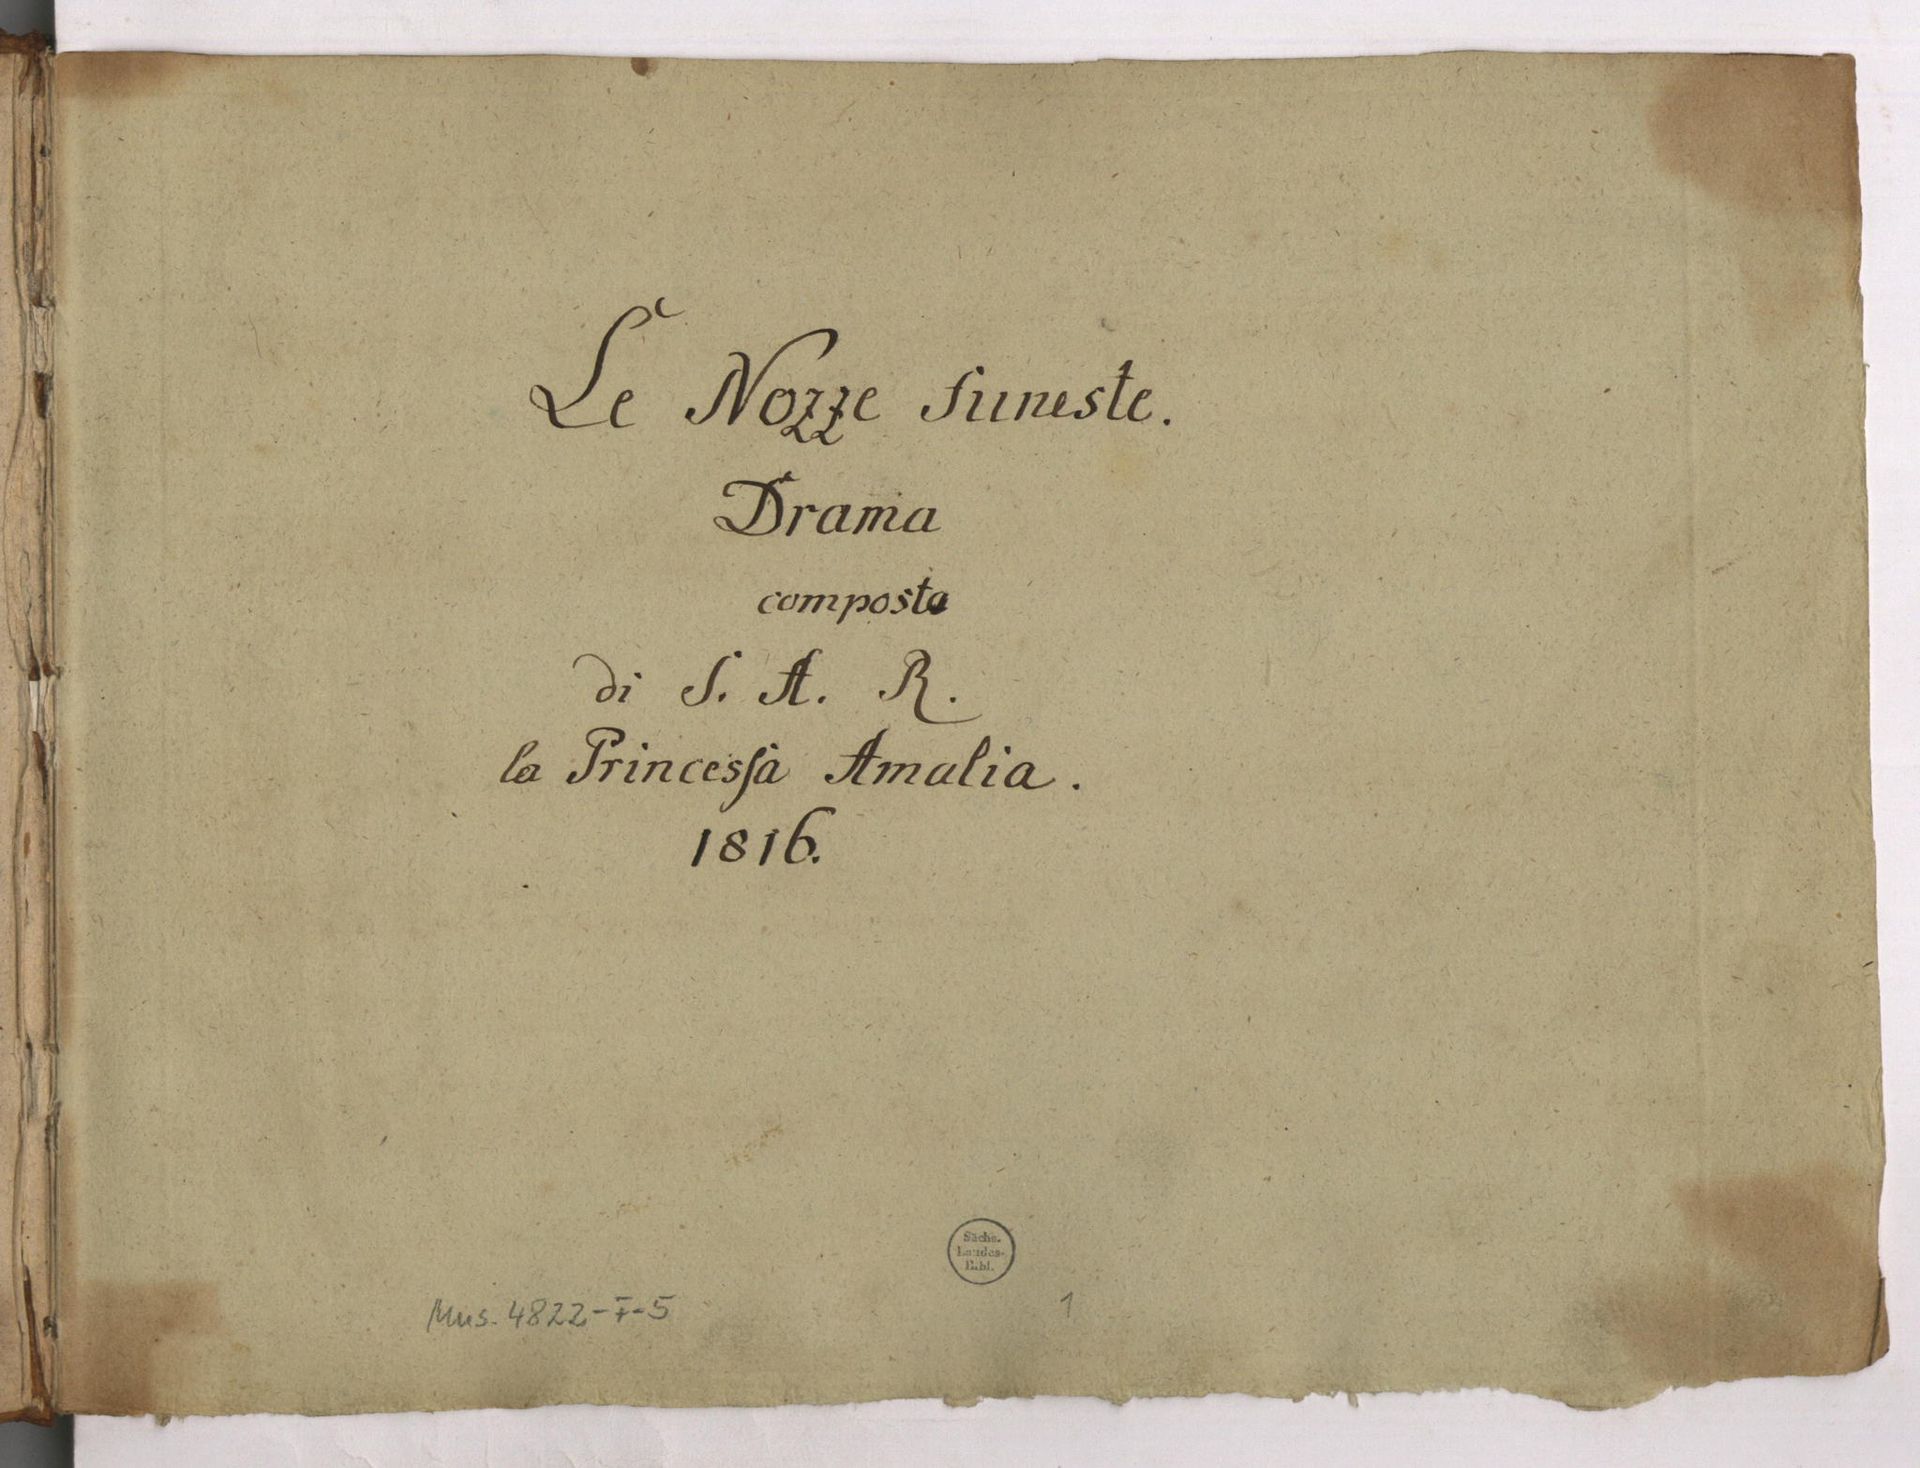 Le Nozze funeste.
Drama
composta
di S. A. R.
la Princeſsa Amalia.
1816.
Sächs.
Landes-
Bibl.
Mus. 4822-F-5
1